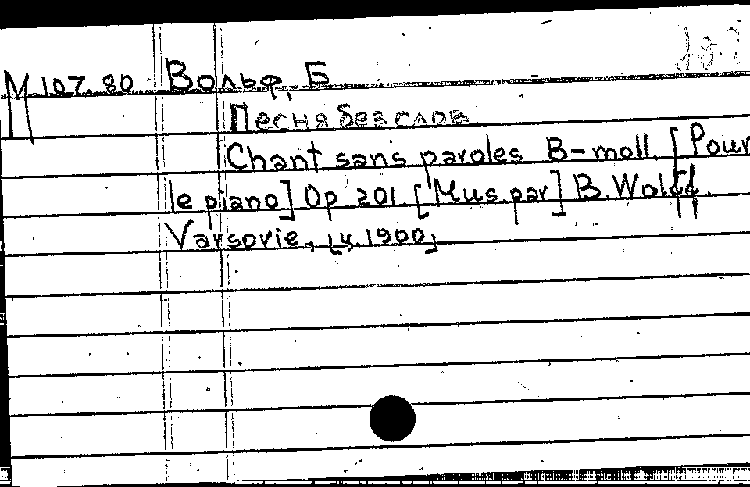 М 107.80 Вольф, Б
Песня без слов
Chant sans paroles B-moll. [Pour
le piano] Op 201. [Mus. par] B. Wolff.
Varsovie, [v. 1900]